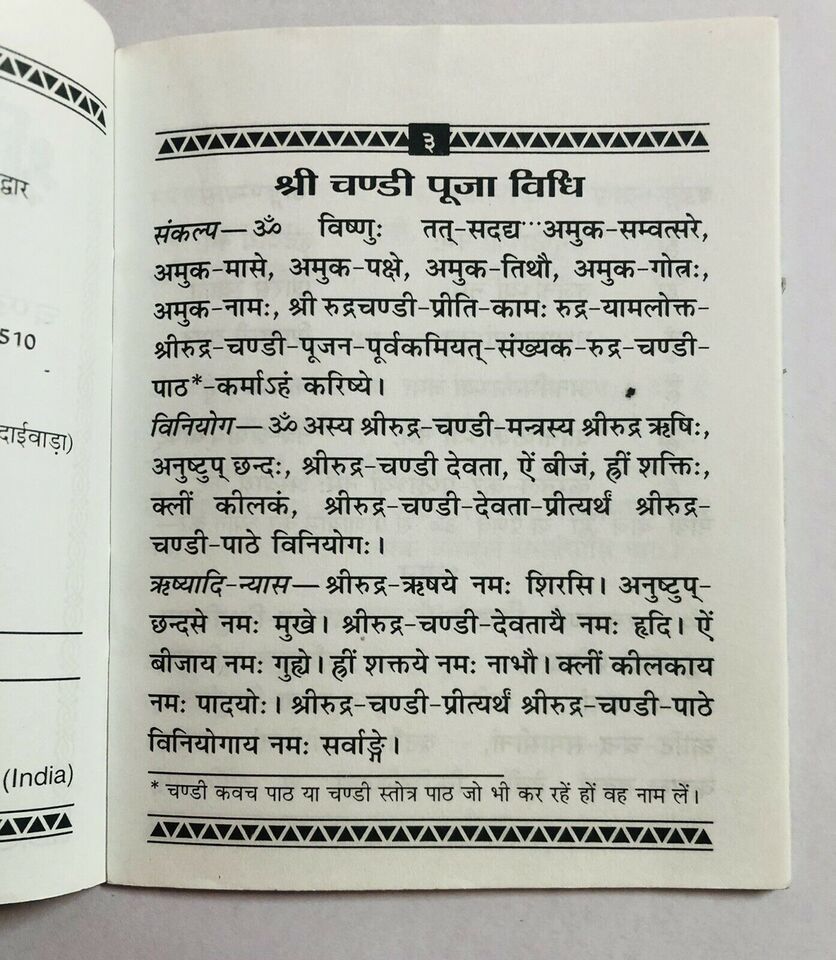 द्वार
510
दाईवाड़ा)
(India)
३
श्री चण्डी पूजा विधि
संकल्प—ॐ विष्णुः तत्-सदद्य···अमुक-सम्वत्सरे,
अमुक-मासे, अमुक-पक्षे, अमुक-तिथौ, अमुक-गोत्रः,
अमुक-नामः, श्री रुद्रचण्डी-प्रीति-कामः रुद्र-यामलोक्त-
श्रीरुद्र-चण्डी-पूजन-पूर्वकमियत्-संख्यक-रुद्र-चण्डी-
पाठ*-कर्माऽहं करिष्ये।
विनियोग—ॐ अस्य श्रीरुद्र-चण्डी-मन्त्रस्य श्रीरुद्र ऋषिः,
अनुष्टुप् छन्दः, श्रीरुद्र-चण्डी देवता, ऐं बीजं, ह्रीं शक्तिः,
क्लीं कीलकं, श्रीरुद्र-चण्डी-देवता-प्रीत्यर्थं श्रीरुद्र-
चण्डी-पाठे विनियोगः।
ऋष्यादि-न्यास—श्रीरुद्र-ऋषये नमः शिरसि। अनुष्टुप्-
छन्दसे नमः मुखे। श्रीरुद्र-चण्डी-देवतायै नमः हृदि। ऐं
बीजाय नमः गुह्ये। ह्रीं शक्तये नमः नाभौ। क्लीं कीलकाय
नमः पादयोः। श्रीरुद्र-चण्डी-प्रीत्यर्थं श्रीरुद्र-चण्डी-पाठे
विनियोगाय नमः सर्वाङ्गे।
* चण्डी कवच पाठ या चण्डी स्तोत्र पाठ जो भी कर रहें हों वह नाम लें।